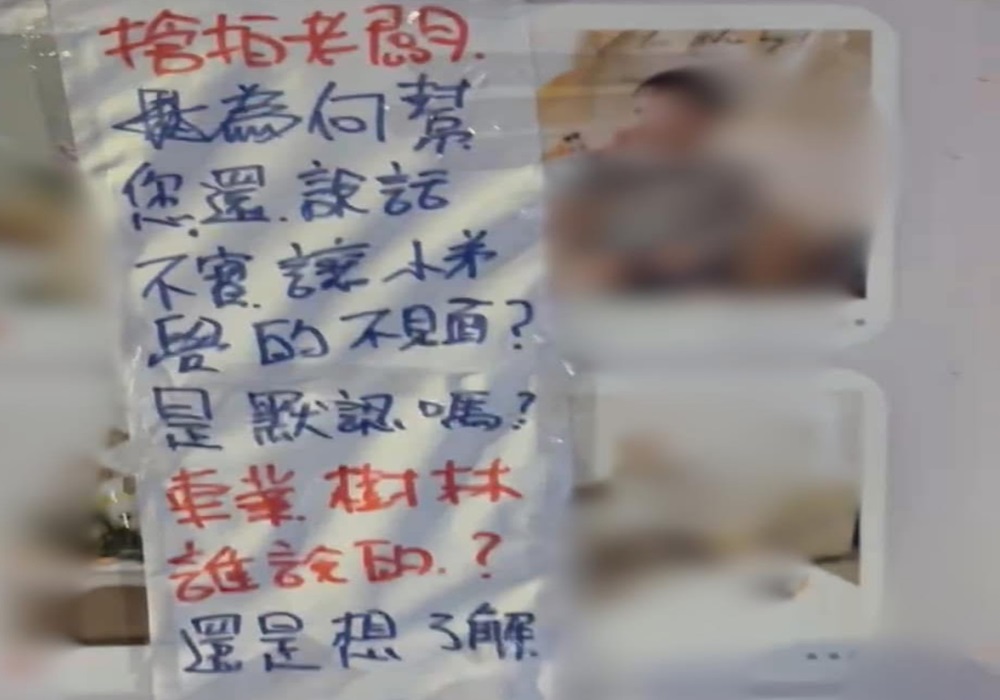 捨指老闆.
為何幫
您還.說話
不實.讓小弟
的不見面?
是默認嗎?
車業.樹林
誰說的.?
還是想了解